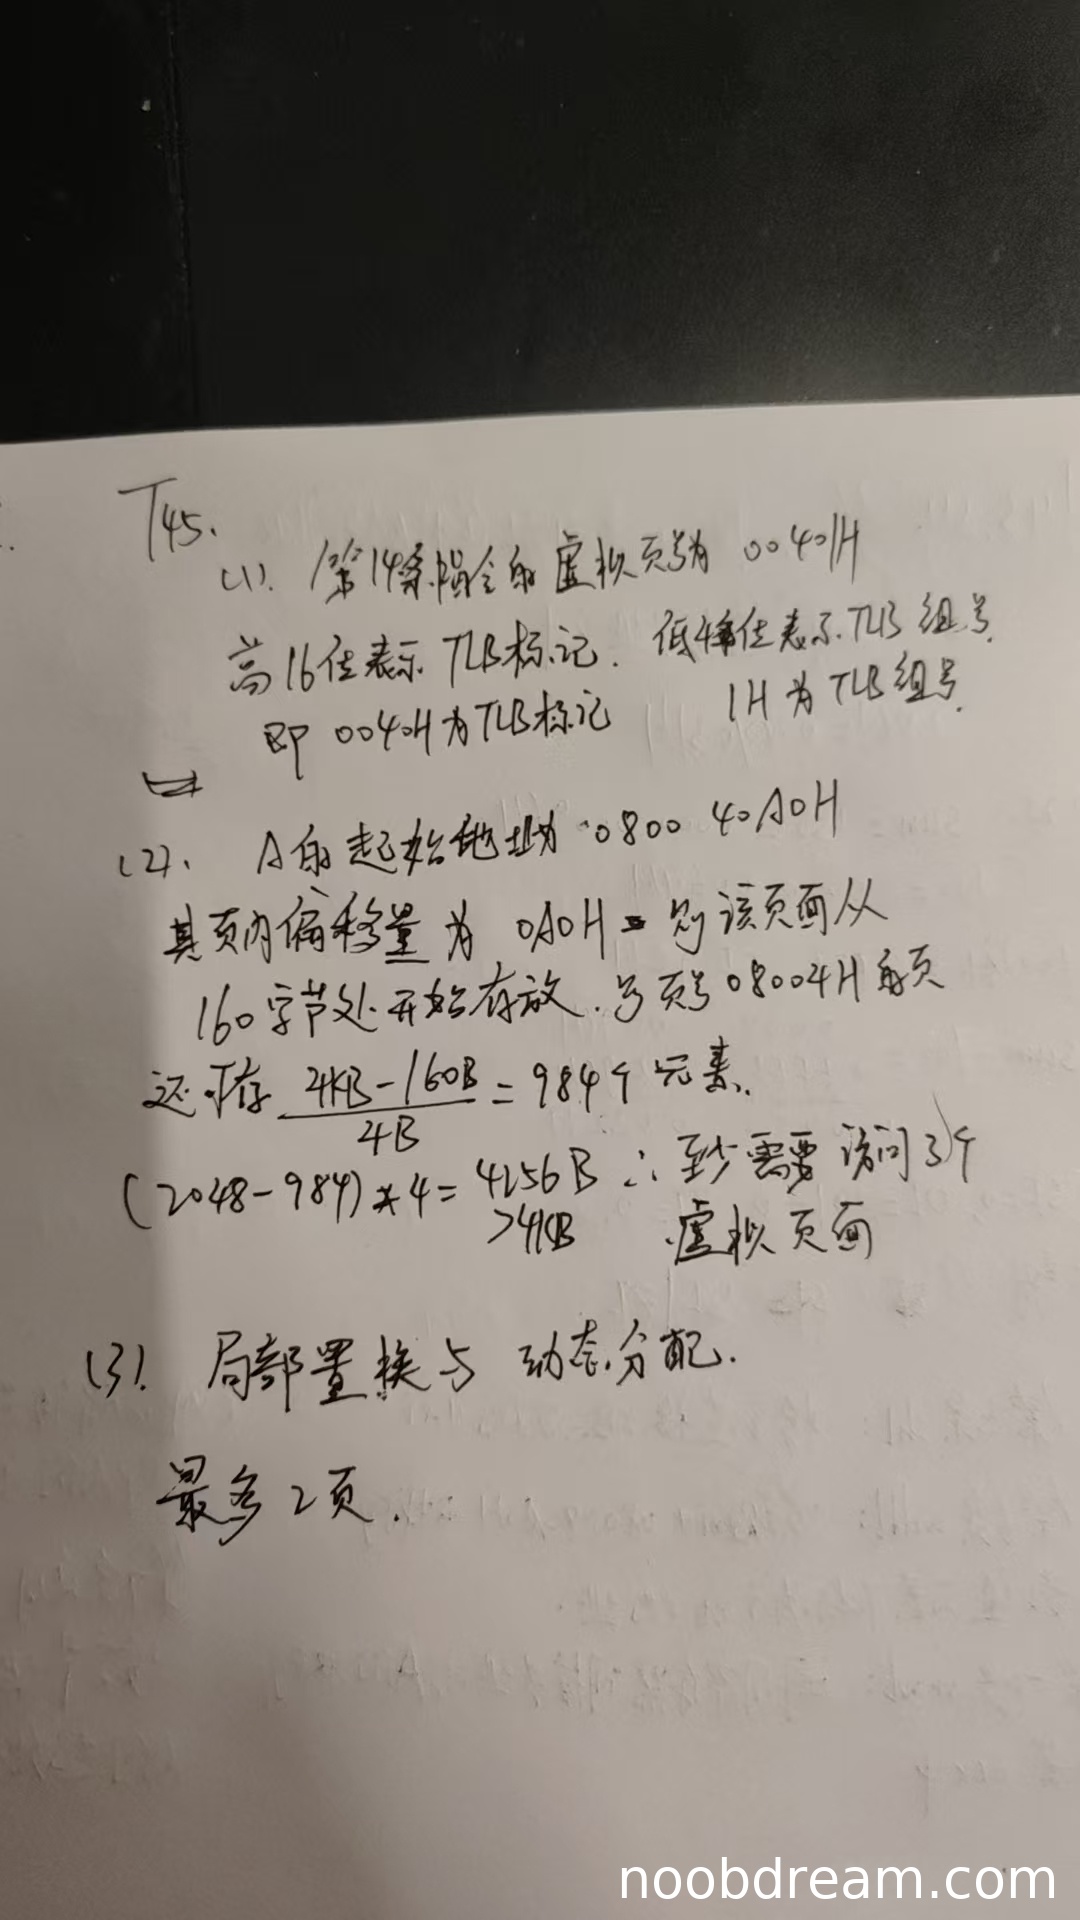 T45.
(1). 第14条指令的虚拟页号为 00401H
高16位表示TLB标记. 低4位表示TLB组号.
即 0040H为TLB标记 1H为TLB组号.
(2). A的起始地址为 0800 40A0H
其页内偏移量为 0A0H 则该页面从
160字节处开始存放. 页号08004H的页
还可存 4KB-160B/4B = 984个元素.
(2048-984)*4=4256B ∴至少需要访问3个
>4KB 虚拟页面
(3). 局部置换与动态分配.
最多2页.
noobdream.com